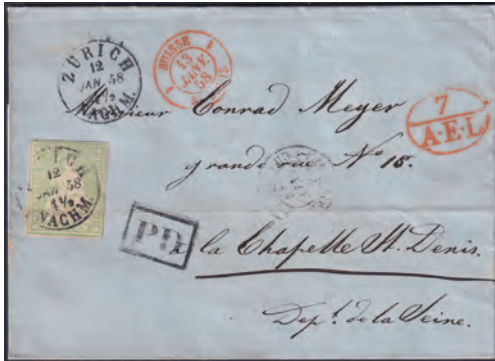 ZÜRICH
12
JAN. 58
NACHM.
SUISSE
13
JANV.
58
7
A·E·L
Monsieur Conrad Meyer
grande rue N° 18.
12
JAN. 58
NACHM.
PD
la Chapelle St. Denis.
Dept. de la Seine.